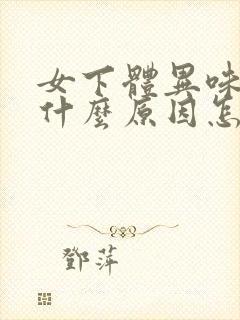 女下體異味
什麼原因怎
鄧萍